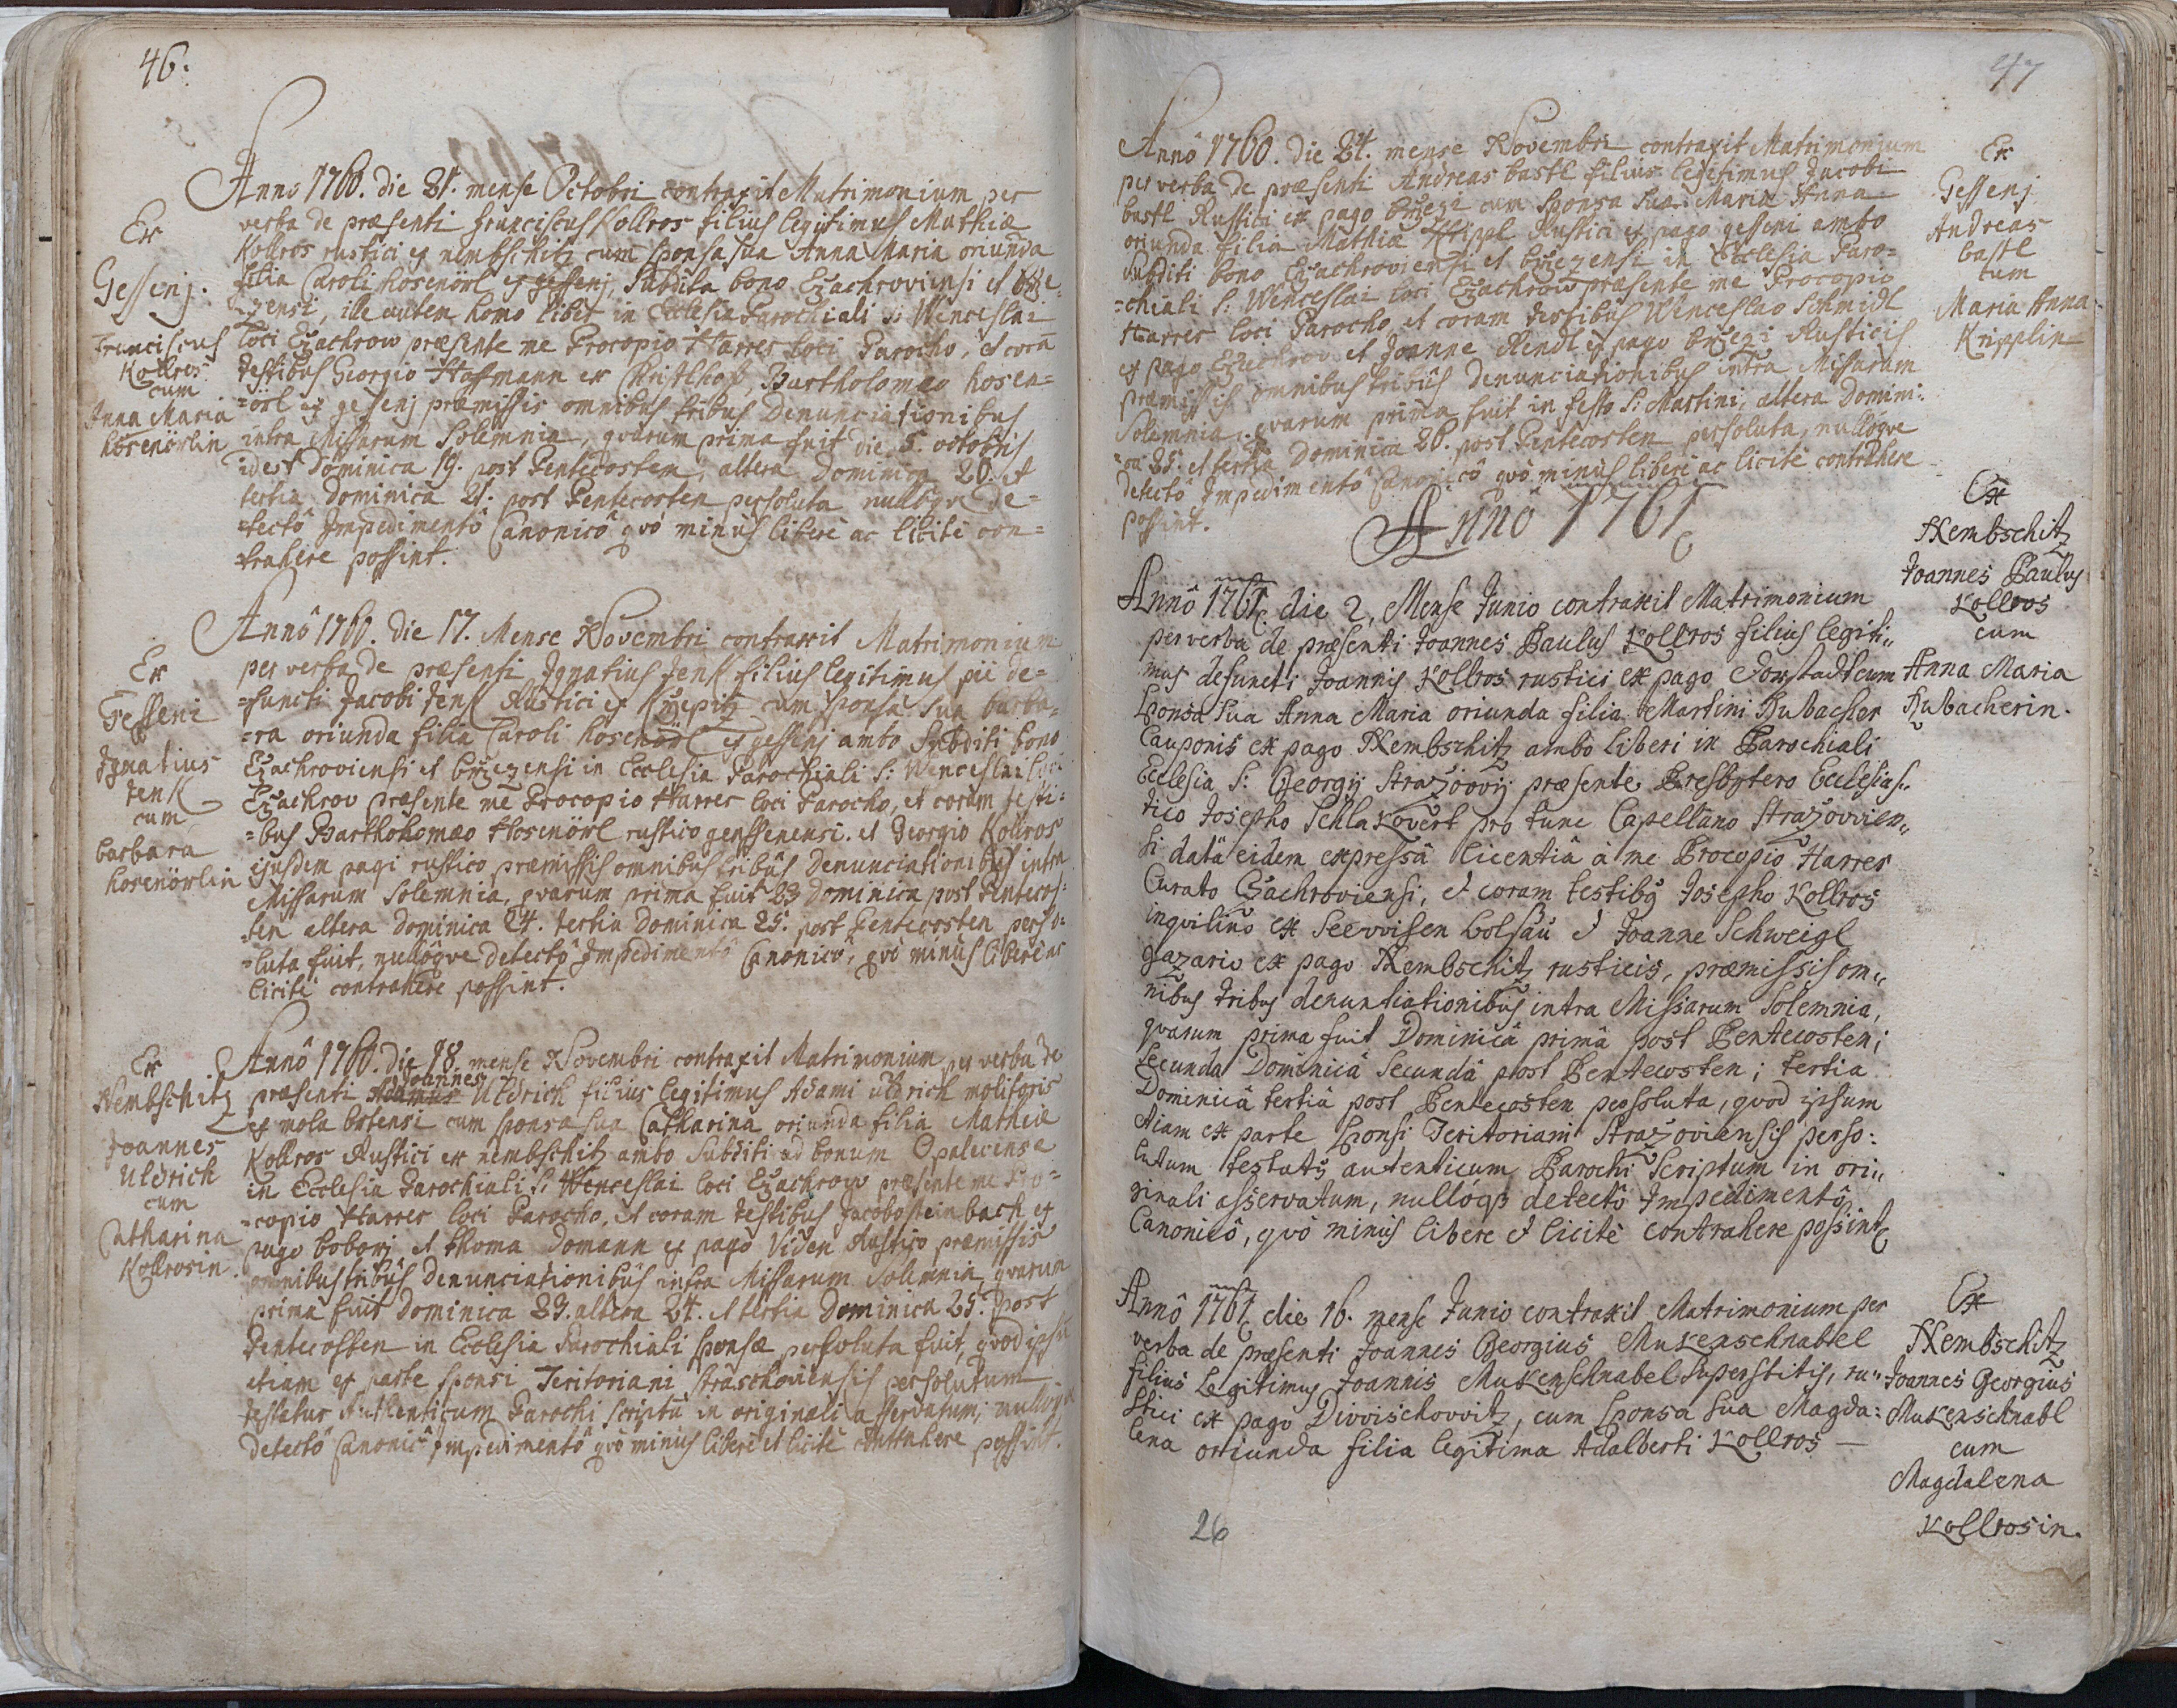 46.
Anno 1760. die 21. mense Octobri contraxit Matrimonium per
verba de præsenti Franciscus Kollros filius legitimus Mathiæ
Kollros rustici ex nembschitz cum sponsa sua Anna Maria oriunda
filia Caroli hosenörl ex gessenj, Subdita bono Czachroviensi et brże=
=zensi, ille autem homo liber in Ecclesia Parochiali S: Wenceslai
loci Czachrow præsente me Procopio Harrer loci Parocho, et corã
testibus Georgio Hoffmann ex Christlhof, Bartholomæo hosen=
=örl ex gessenj præmissis omnibus tribus Denunciationibus
intra Missarum Solemnia, qvarum prima fuit die 5. octobris
idest Dominica 19. post Pentecosten, altera Dominica 20. et
tertia Dominica 21. post Pentecosten persoluta nullôqve de=
=tectô Impedimentô Canonicô qvô minùs liberè ac licitè con=
trahere possint.
Ex
Gessenj.
Franciscus
Kollros
cum
Anna Maria
hosenörlin
Annô 1760. die 17. Mense Novembri contraxit Matrimonium
per verba de præsenti Ignatius Jenk filius legitimus pii de=
=functi Jacobi Jenk Rustici ex Kržepitz cum sponsa sua barba=
=ra oriunda filia Caroli hosenörl ex gessenj ambo Subditi bono
Czachroviensi et brżezensi in Ecclesia Parochiali S: Wenceslai loci
Czachrov præsente me Procopio Harrer loci Parocho, et coram testi=
=bus Bartholomæo Hosenörl rustico genssenensi. et Georgio Kollros
ejusdem pagi rustico præmissis omnibus tribùs Denunciationibùs intra
Missarum Solemnia, qvarum prima fuit 23 Dominica post Pentecos=
=ten altera Dominica 24. tertia Dominica 25. post Pentecosten perso=
=luta fuit, nullôqve detectô Impedimentô Canonicô, qvò minùs liberè ac
licitè contrahere possint.
Ex
Gesseni
Ignatius
Jenk
cum
barbara
hosenörlin
Annô 1760. Die 18. mense Novembri contraxit Matrimonium per verba de
præsenti Adamus Joannes Uldrich filius legitimus Adami uldrich molitoris
ex mola bstensi cum sponsa sua Catharina oriunda filia Mathiæ
Kollros Rustici ex nembschitz ambo Subditi ad bonum Opalecense
in Ecclesia Parochiali S: Wenceslai loci Czachrow præsente me Pro=
=copio Harrer loci Parocho, et coram testibus Jacobo steinbach ex
pago boborj et thoma Domann ex pago Viden Rustico præmissis
omnibus tribùs Denunciationibùs intra Missarum Solemnia qvarum
prima fuit Dominica 23. altera 24. et tertia Dominica 25. post
Pentecosten in Ecclesia Parochiali sponsæ persoluta fuit, qvod ipsũ
etiam ex parte sponsi Teritoriani straschoviensis persolutum
testatur Authenticum Parochi scriptũ in originali asservatum, nullôqve
detectô Canonicô Impedimentô qvô minùs liberè et licitè contrahere possint.
Ex
Nembschitz
Joannes
Uldrich
cum
Catharina
Kollrosin.
47
Annô 1760. die 24. mense Novembri contraxit Matrimonium
per verba de præsenti Andreas bastl filius legitimus Jacobi
bastl Rustici ex pago brżezi cum sponsa sua Maria Anna
oriunda filia Mathiæ Kripl Rustici ex pago gesseni ambo
Subditi bono Czachroviensi et brżezensi in Ecclesia Paro=
=chiali S: Wenceslai loci Czachrow præsente me Procopio
Harrer loci Parocho, et coram testibus Wenceslao Schmidl
ex pago Czachrov et Joanne Rendl ex pago brżezi Rusticis
præmissis omnibus tribùs Denunciationibus intra Missarum
Solemnia. qvarum prima fuit in festo S: Martini, altera Domini:
=ca 25. et tertia Dominica 26. post Pentecosten persoluta, nullôqve
detectô Impedimentô Canonicô qvô minùs liberè ac licitè contrahere
possint.
Ex
Gessenj
Andreas
bastl
cum
Maria Anna
Kripplin
Annô 1761
Annô 1761. die 2, Mense Junio contraxit Matrimonium
per verba de præsenti Joannes Paulus Kollros filius legiti„
mus defuncti Joannis Kollros rustici ex pago Dorstadt cum
Sponsa sua Anna Maria oriunda filia Martini Hubacher
Cauponis ex pago Nembschitz ambo liberi in Parochiali
Ecclesia S: Georgij Strazovvij præsente Presbytero Ecclesias„
tico Josepho Schlakovert pro tunc Capellano Strazovvien„
si datâ eidem expressâ licentiâ à me Procopio Harrer
Curato Czachroviensi, et coram testibus Josepho Kollros
inqvilino ex Seevvisen bolsau et Joanne Schweigl
gazario ex pago Nembschitz rusticis, præmissis om„
nibus tribus denuntiationibùs intra Missarum Solemnia,
qvarum prima fuit Dominicâ primâ post Pentecosten;
Secunda Dominicâ Secundâ post Pentecosten; tertia
Dominicâ tertiâ post Pentecosten persoluta, qvod ipsum
etiam ex parte Sponsi Teritoriani Strazoviensis perso:
lutum testatur autenticum Parochi Scriptum in ori„
ginali asservatum, nullóqve detectô Impedimentô
Canonicô, qvô minùs liberè et licitè contrahere possint
Ex
Nembschitz
Joannes Paulus
Kollros
cum
Anna Maria
Hubacherin.
Annô 1761 die 16. mense Junio contraxit Matrimonium per
verba de præsenti Joannes Georgius Mukenschnabel
filius Legitimus Joannis Mukenschnabel Superstitis, ru„
stici ex pago Divvischovvitz, cum Sponsa sua Magda:
lena oriunda filia legitima Adalberti Kollros —
Ex
Nembschitz
Joannes Georgius
Mukenschnabl
cum
Magdalena
Kollrosin.
26